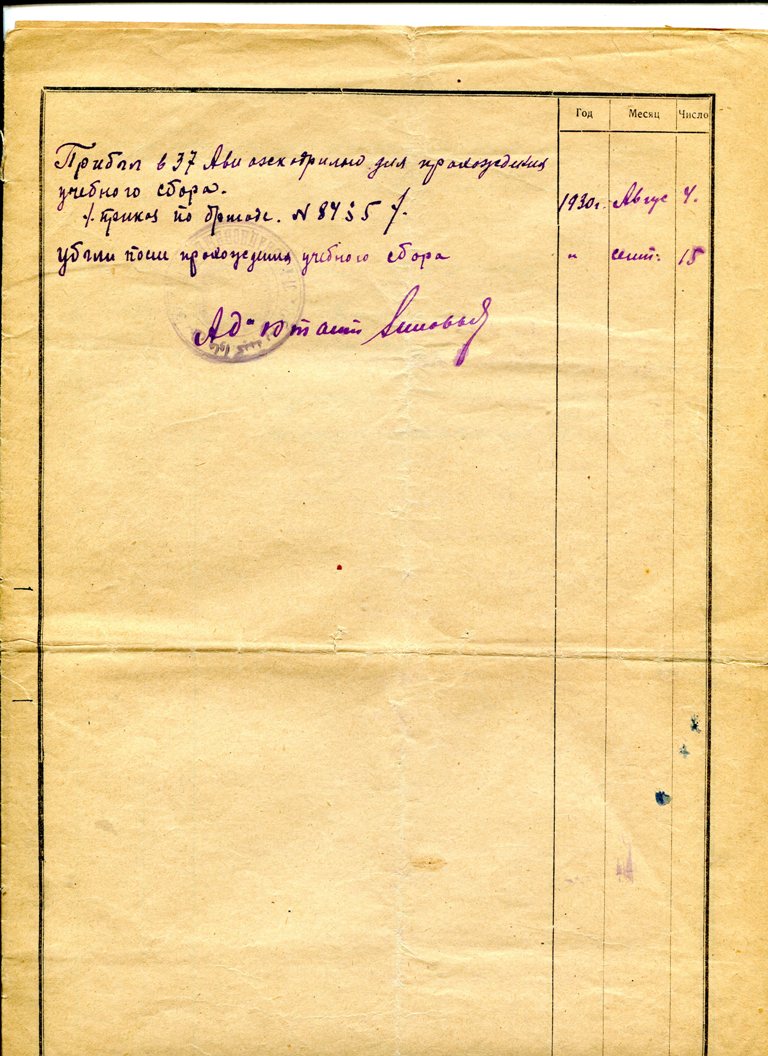 Год Месяц Число
Прибыл в 37 Авиаэскадрилью для прохождения
учебного сбора. 1930г. Август 4.
/. приказ по бригаде. N 84 § 5 /.
Убыл после прохождения учебного сбора " сент. 15
Адъютант